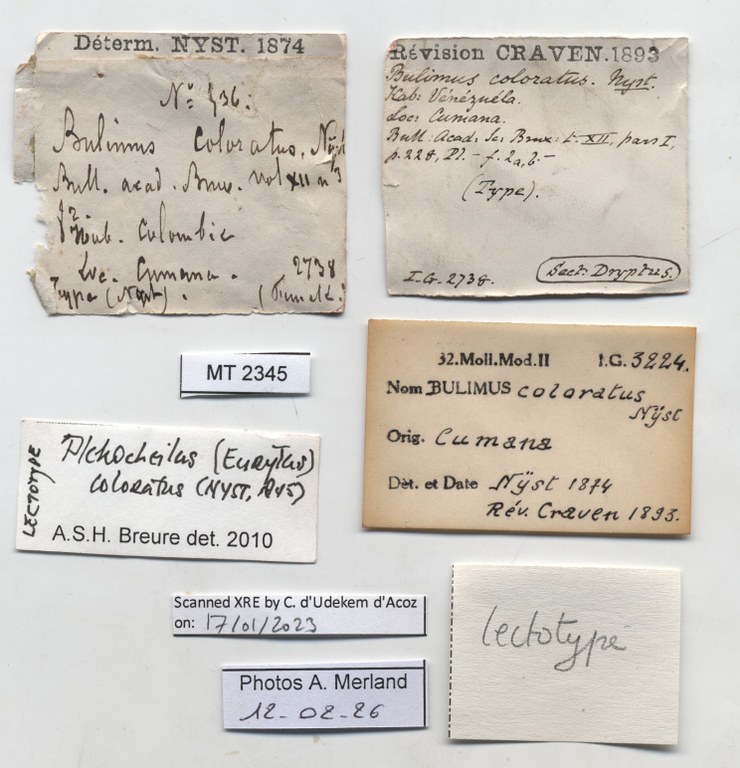 Déterm. NYST. 1874
No 436.
Bulimus coloratus, Nyst
Bull. acad. Brux. vol XII n
Hab. Colombie
Loc. Cumana.
2738
Type (Nyst).
Révision CRAVEN.1893
Bulimus coloratus. Nyst.
Hab: Vénézuéla.
Loc: Cumana.
Bull: Acad: Sc: Brux: t. XII, pars I,
p. 228, Pl. - f. 2a, b. -
(Type).
I.G. 2738.
Sect: Dryptus.
MT 2345
32.Moll.Mod.II I.G. 3224.
Nom BULIMUS coloratus
Nÿst
Orig. Cumana
Dét. et Date Nÿst 1874
Rév. Craven 1893.
LECTOTYPE
Plekocheilus (Eurytus)
coloratus (NYST, 1845)
A.S.H. Breure det. 2010
Scanned XRE by C. d'Udekem d'Acoz
on: 17/01/2023
Photos A. Merland
12-02-26
lectotype